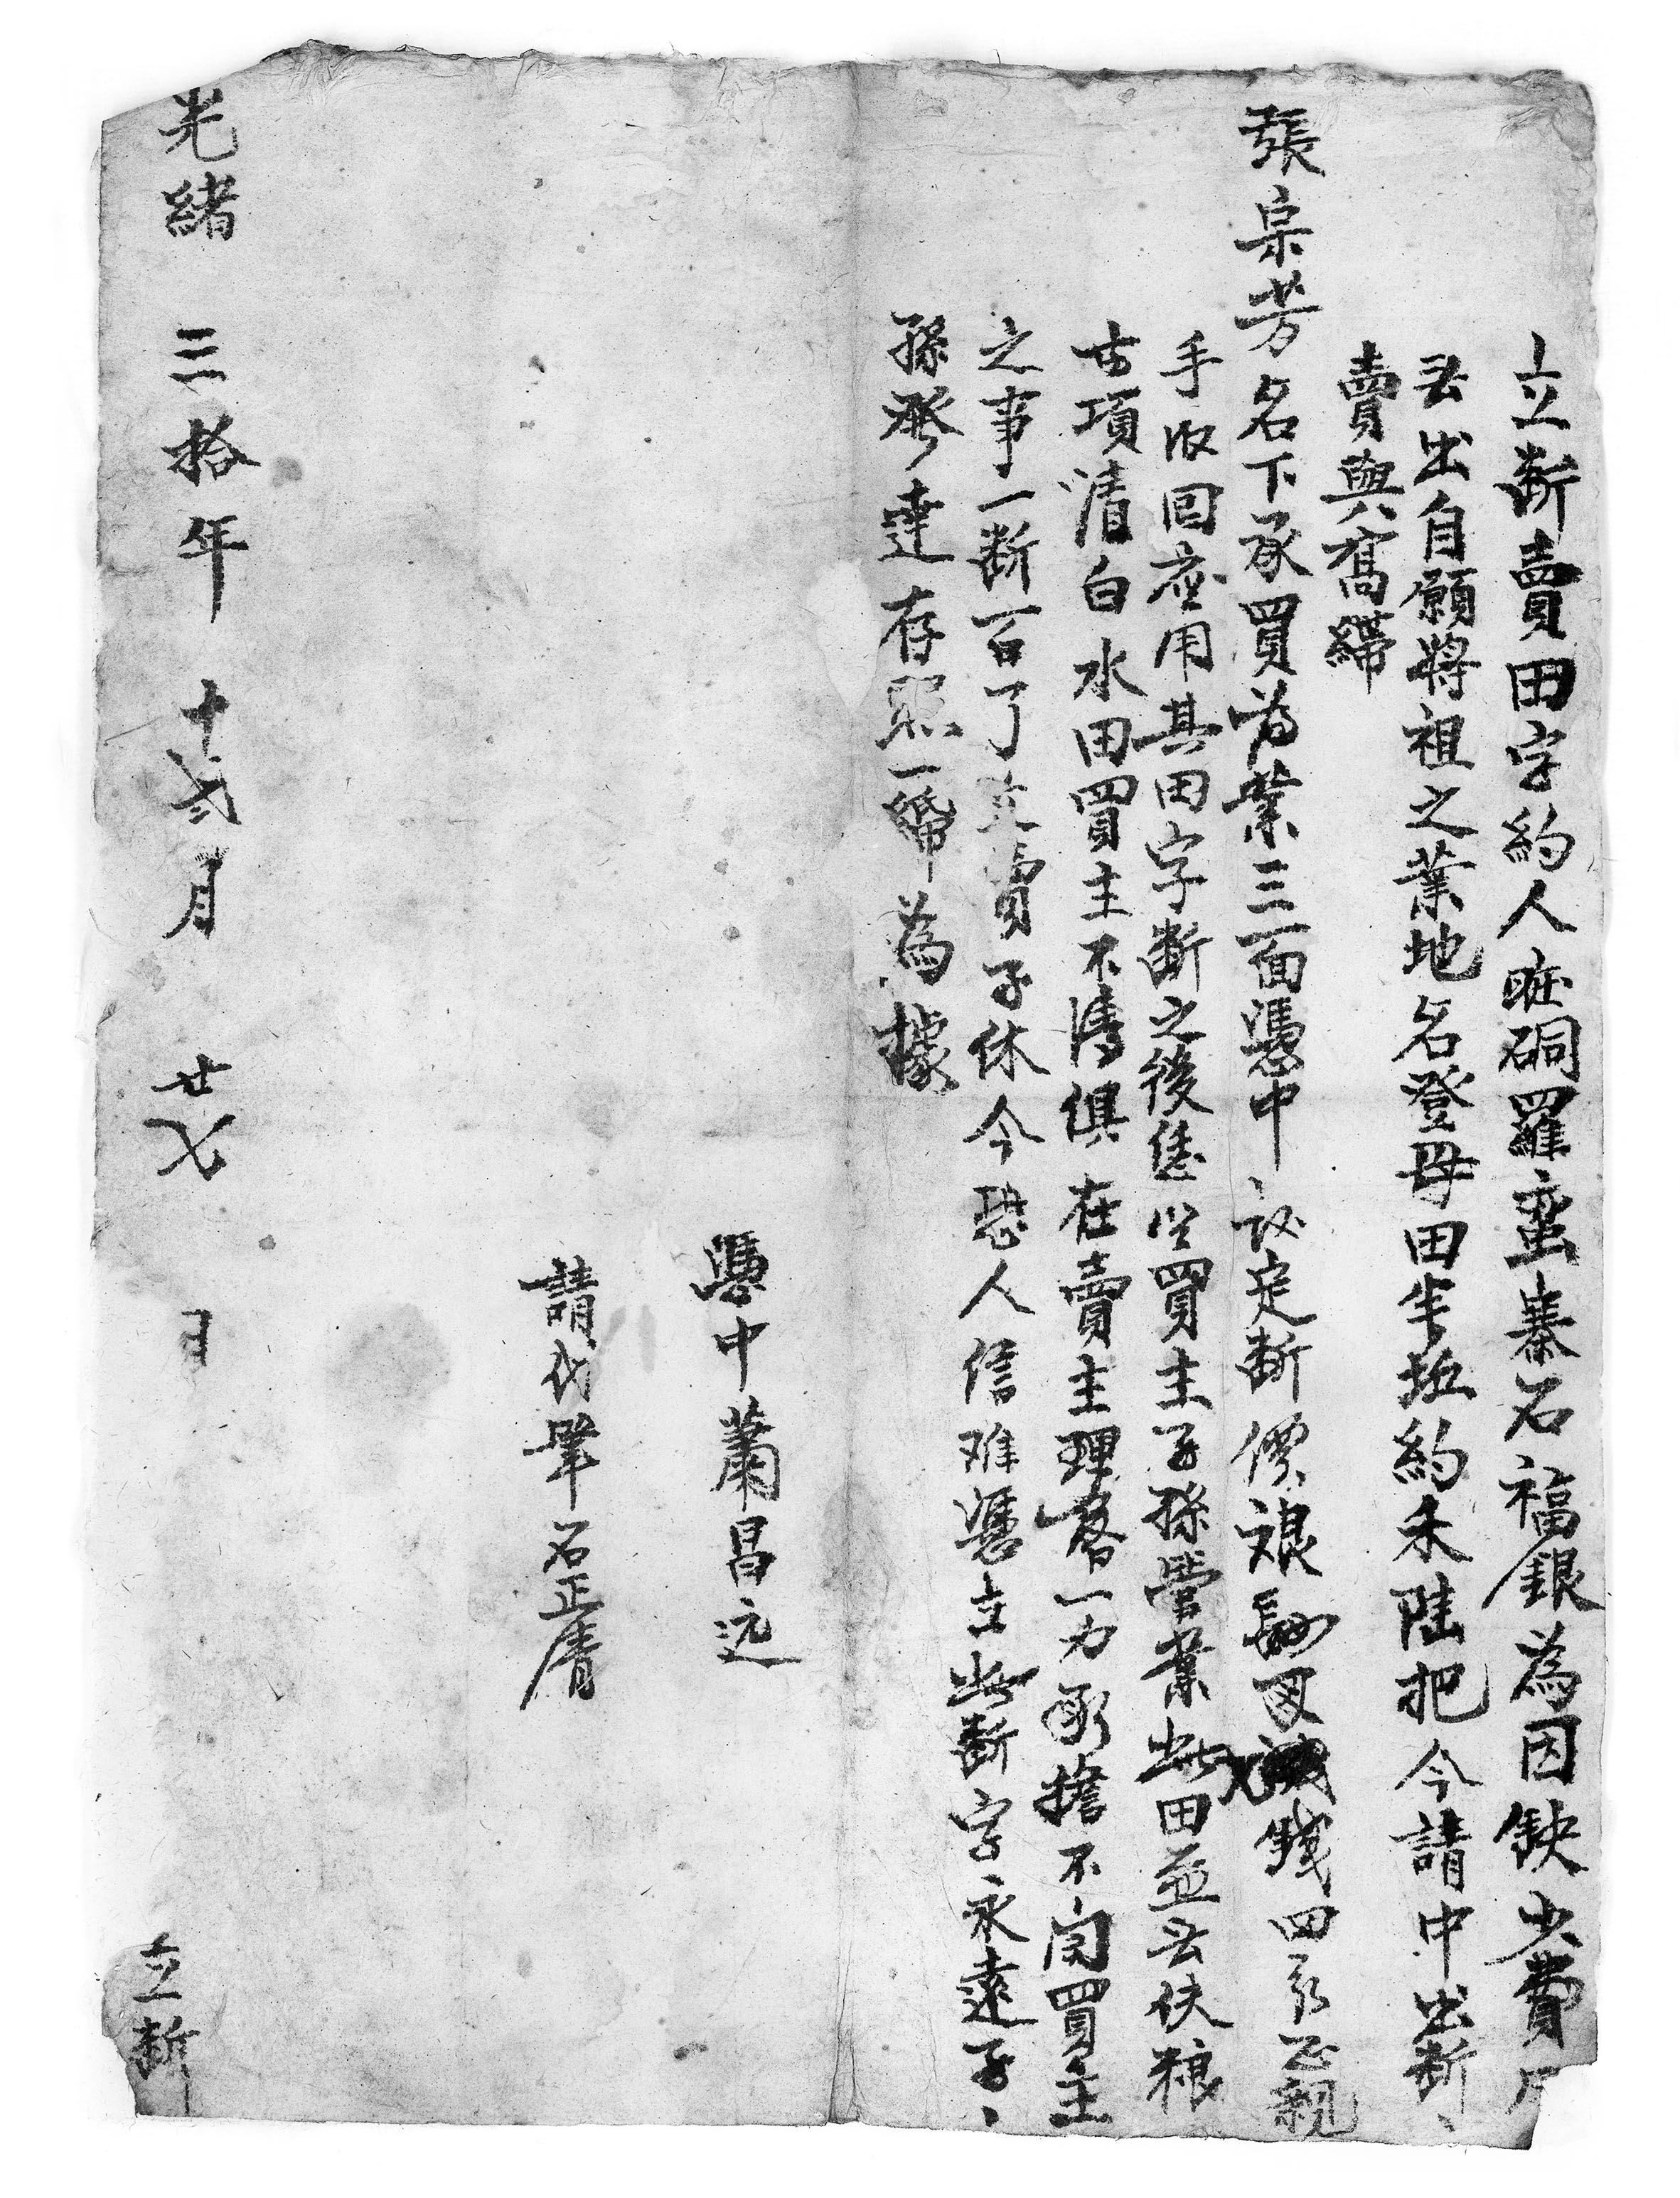 立斷賣田字約人㘴硐羅蛮寨石福銀為因缺少費用
無出自願將祖之業地名登母田半坵約禾陆把今請中出斷、
賣與窩繻
張宗芳名下承買為業三面憑中议定断價銀 錢四分正親
手收回应用其田字断之後凭从買主子孫管業此田並无伕粮
古項清白水田買主不清俱在賣主理落一力承擔不関買主
之事一断百了立賣子休今恐人信难憑立此断字永遠子、
孫發達存照一紙為據
憑中蕭昌远
請代筆石正清
光緒三拾年十贰月廿七日 立断